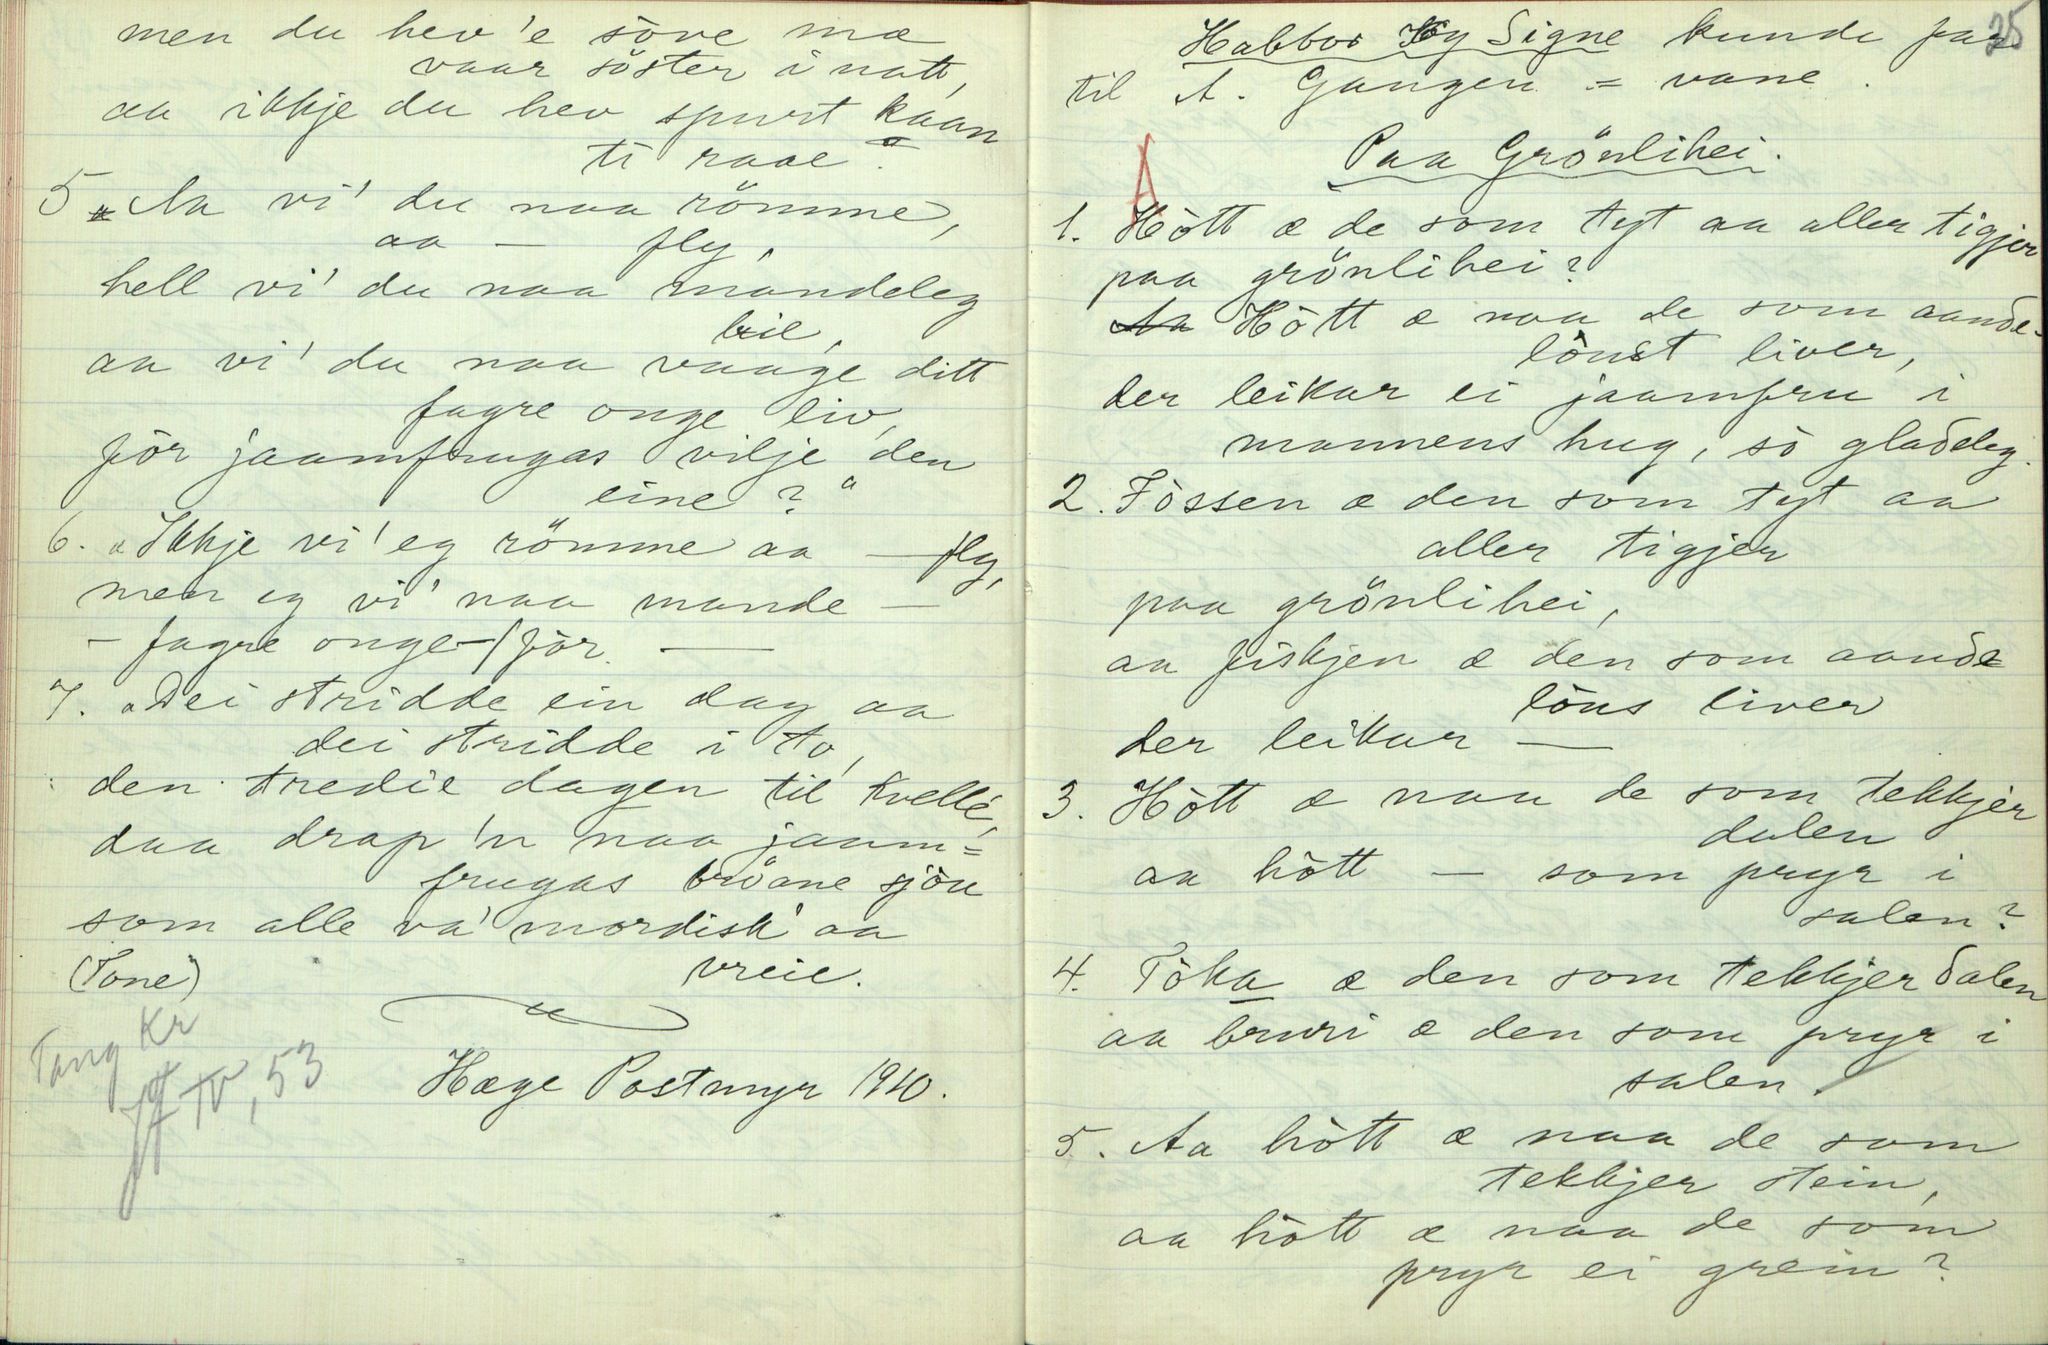 men du hev'e söve mæ
vaar söster i natt,
aa ikkje du hev spurt kaan
ti raae.
5. "Aa vi' du naa römme,
aa — fly,
hell vi' du naa mandeleg
bie,
aa vi' du naa vaage ditt
fagre onge liv,
för jaamfrugas vilje den
eine?"
6. "Ikkje vi' eg römme aa — fly,
men eg vi' naa mande —
— fagre onge — för —
7. "Dei stridde ein dag aa
dei stridde i to,
den tredie dagen til kvelle,
daa drap 'n naa jaam=
frugas bröane sjöu
som alle va' mordisk' aa
vreie.
(Tone)
Tang Kr
Jf IV, 53
Hæge Postmyr 1910.
25
Habbor og Signe kunde
til A. Gangen = vane.
Paa Grönlihei.
A
1. Hòtt æ de som tyt aa aller tigjer
paa grönlihei?
Aa Hòtt æ naa de som aande-
lönst liver,
der leikar ei jaamfru i
mannens hug, sò gladeleg.
2. Fòssen æ den som tyt aa
aller tigjer
paa grönlihei,
aa fiskjen æ den som aande
löns liver
der leikar —
3. Hòtt æ naa de som tekkjer
dalen
aa hòtt — som pryr i
salen?
4. Tòka æ den som tekkjer dalen
aa bruri æ den som pryr i
salen.
5. Aa hòtt æ naa de som
tekkjer stein,
aa hòtt æ naa de som
pryr ei grein?